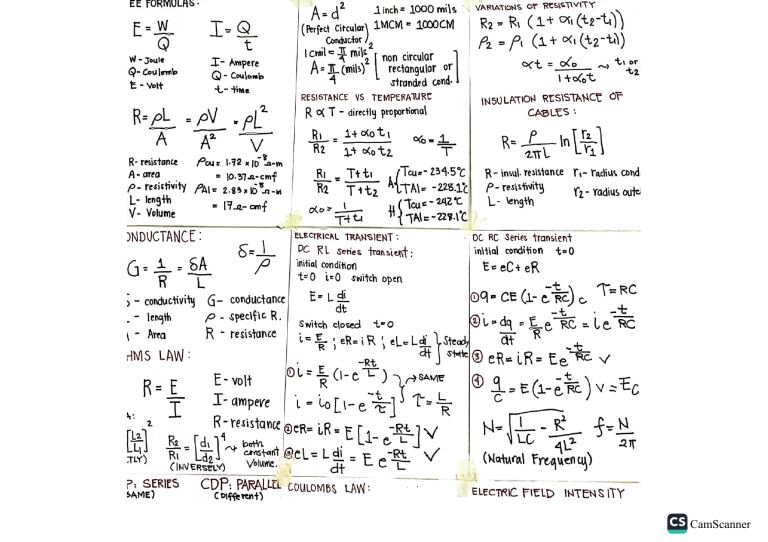 EE FORMULAS:
E = W/Q I = Q/t
W - Joule I - Ampere
Q - Coulomb Q - Coulomb
E - Volt t - time
R = ρL/A = ρV/A² = ρL²/V
R - resistance ρcu = 1.72 x 10⁻⁸ Ω-m
A - area = 10.37 Ω-cmf
ρ - resictivity ρAl = 2.83 x 10⁻⁸ Ω-m
L - length = 17 Ω-cmf
V - Volume
A = d² 1 inch = 1000 mils
(Perfect Circular Conductor) 1MCM = 1000CM
1 cmil = π/4 mils²
A = π/4 (mils)² [non circular rectangular or stranded cond.]
RESISTANCE VS TEMPERATURE
R ∝ T - directly proportional
R1/R2 = 1 + α0t1 / 1 + α0t2 α0 = 1/T
R1/R2 = T + t1 / T + t2 A{ Tcu = -234.5°C
TAl = -228.1°C
α0 = 1/T+t1 H{ Tcu = -242°C
TAl = -228.1°C
VARIATIONS OF RESISTIVITY
R2 = R1 (1 + α1 (t2 - t1))
ρ2 = ρ1 (1 + α1 (t2 - t1))
αt = α0 / 1 + α0t → t1 or t2
INSULATION RESISTANCE OF
CABLES:
R = ρ/2πL ln [r2/r1]
R - insul. resistance r1 - radius cond
ρ - resistivity r2 - radius oute
L - length
ONDUCTANCE:
δ = 1/ρ
G = 1/R = δA/L
- conductivity G - conductance
- length ρ - specific R.
- Area R - resistance
HMS LAW:
R = E/I
E - volt
I - ampere
R - resistance
[L2/L1]² R2/R1 = [d1/d2]⁴ → both constant Volume.
TLY) (INVERSELY)
P: SERIES CDP: PARALLEL
SAME) (Different)
ELECTRICAL TRANSIENT:
DC RL Series transient:
initial condition
t=0 i=0 switch open
E = L di/dt
Switch closed t=0
i = E/R ; eR = iR ; eL = L di/dt } Steady state
① i = E/R (1 - e^-Rt/L)
→ SAME
i = i0 [1 - e^-t/τ] τ = L/R
② eR = iR = E [1 - e^-Rt/L] V
③ eL = L di/dt = E e^-Rt/L V
COULOMBS LAW:
DC RC Series transient
initial condition t=0
E = eC + eR
① q = CE (1 - e^-t/RC) C τ = RC
② i = dq/dt = E/R e^-t/RC = i e^-t/RC
③ eR = iR = E e^-t/RC V
④ q/c = E (1 - e^-t/RC) V = Ec
N = √(1/LC - R²/4L²) f = N/2π
(Natural Frequency)
ELECTRIC FIELD INTENSITY
CS CamScanner